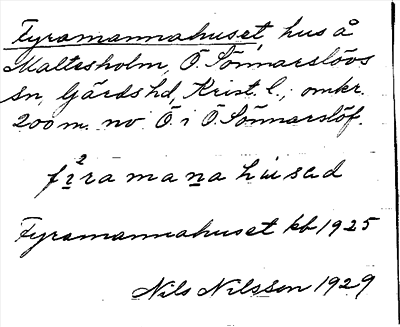 Fyramannahuset, hus å
Maltesholm, Ö. Sönnarslövs
sn, Gärds hd, Krist. l., omkr.
200 m. nv. Ö i Ö. Sönnarslöf.
fi²ramanahusad
Fyramannahuset kb 1925
Nils Nilsson 1929